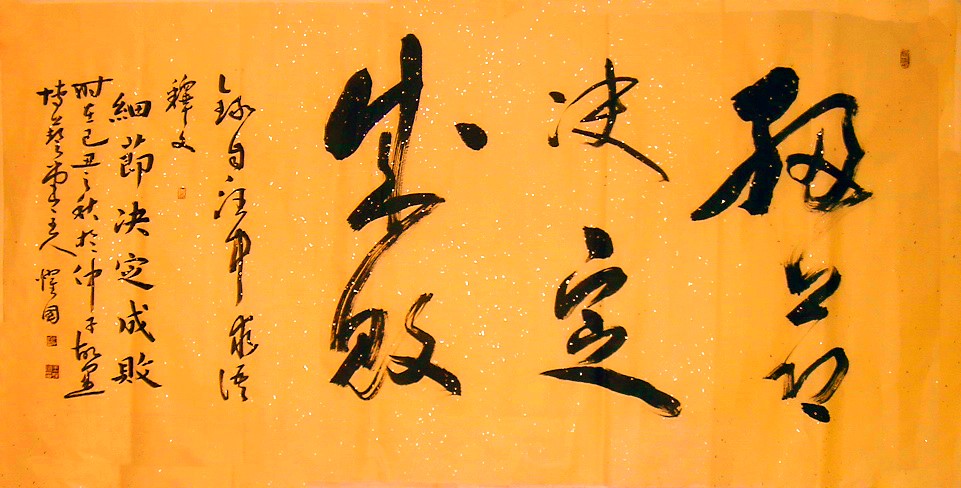 細节
决定
成敗
錄自汪中求語
釋文
細節决定成敗
时在己丑之秋於仲子故里
堂主人